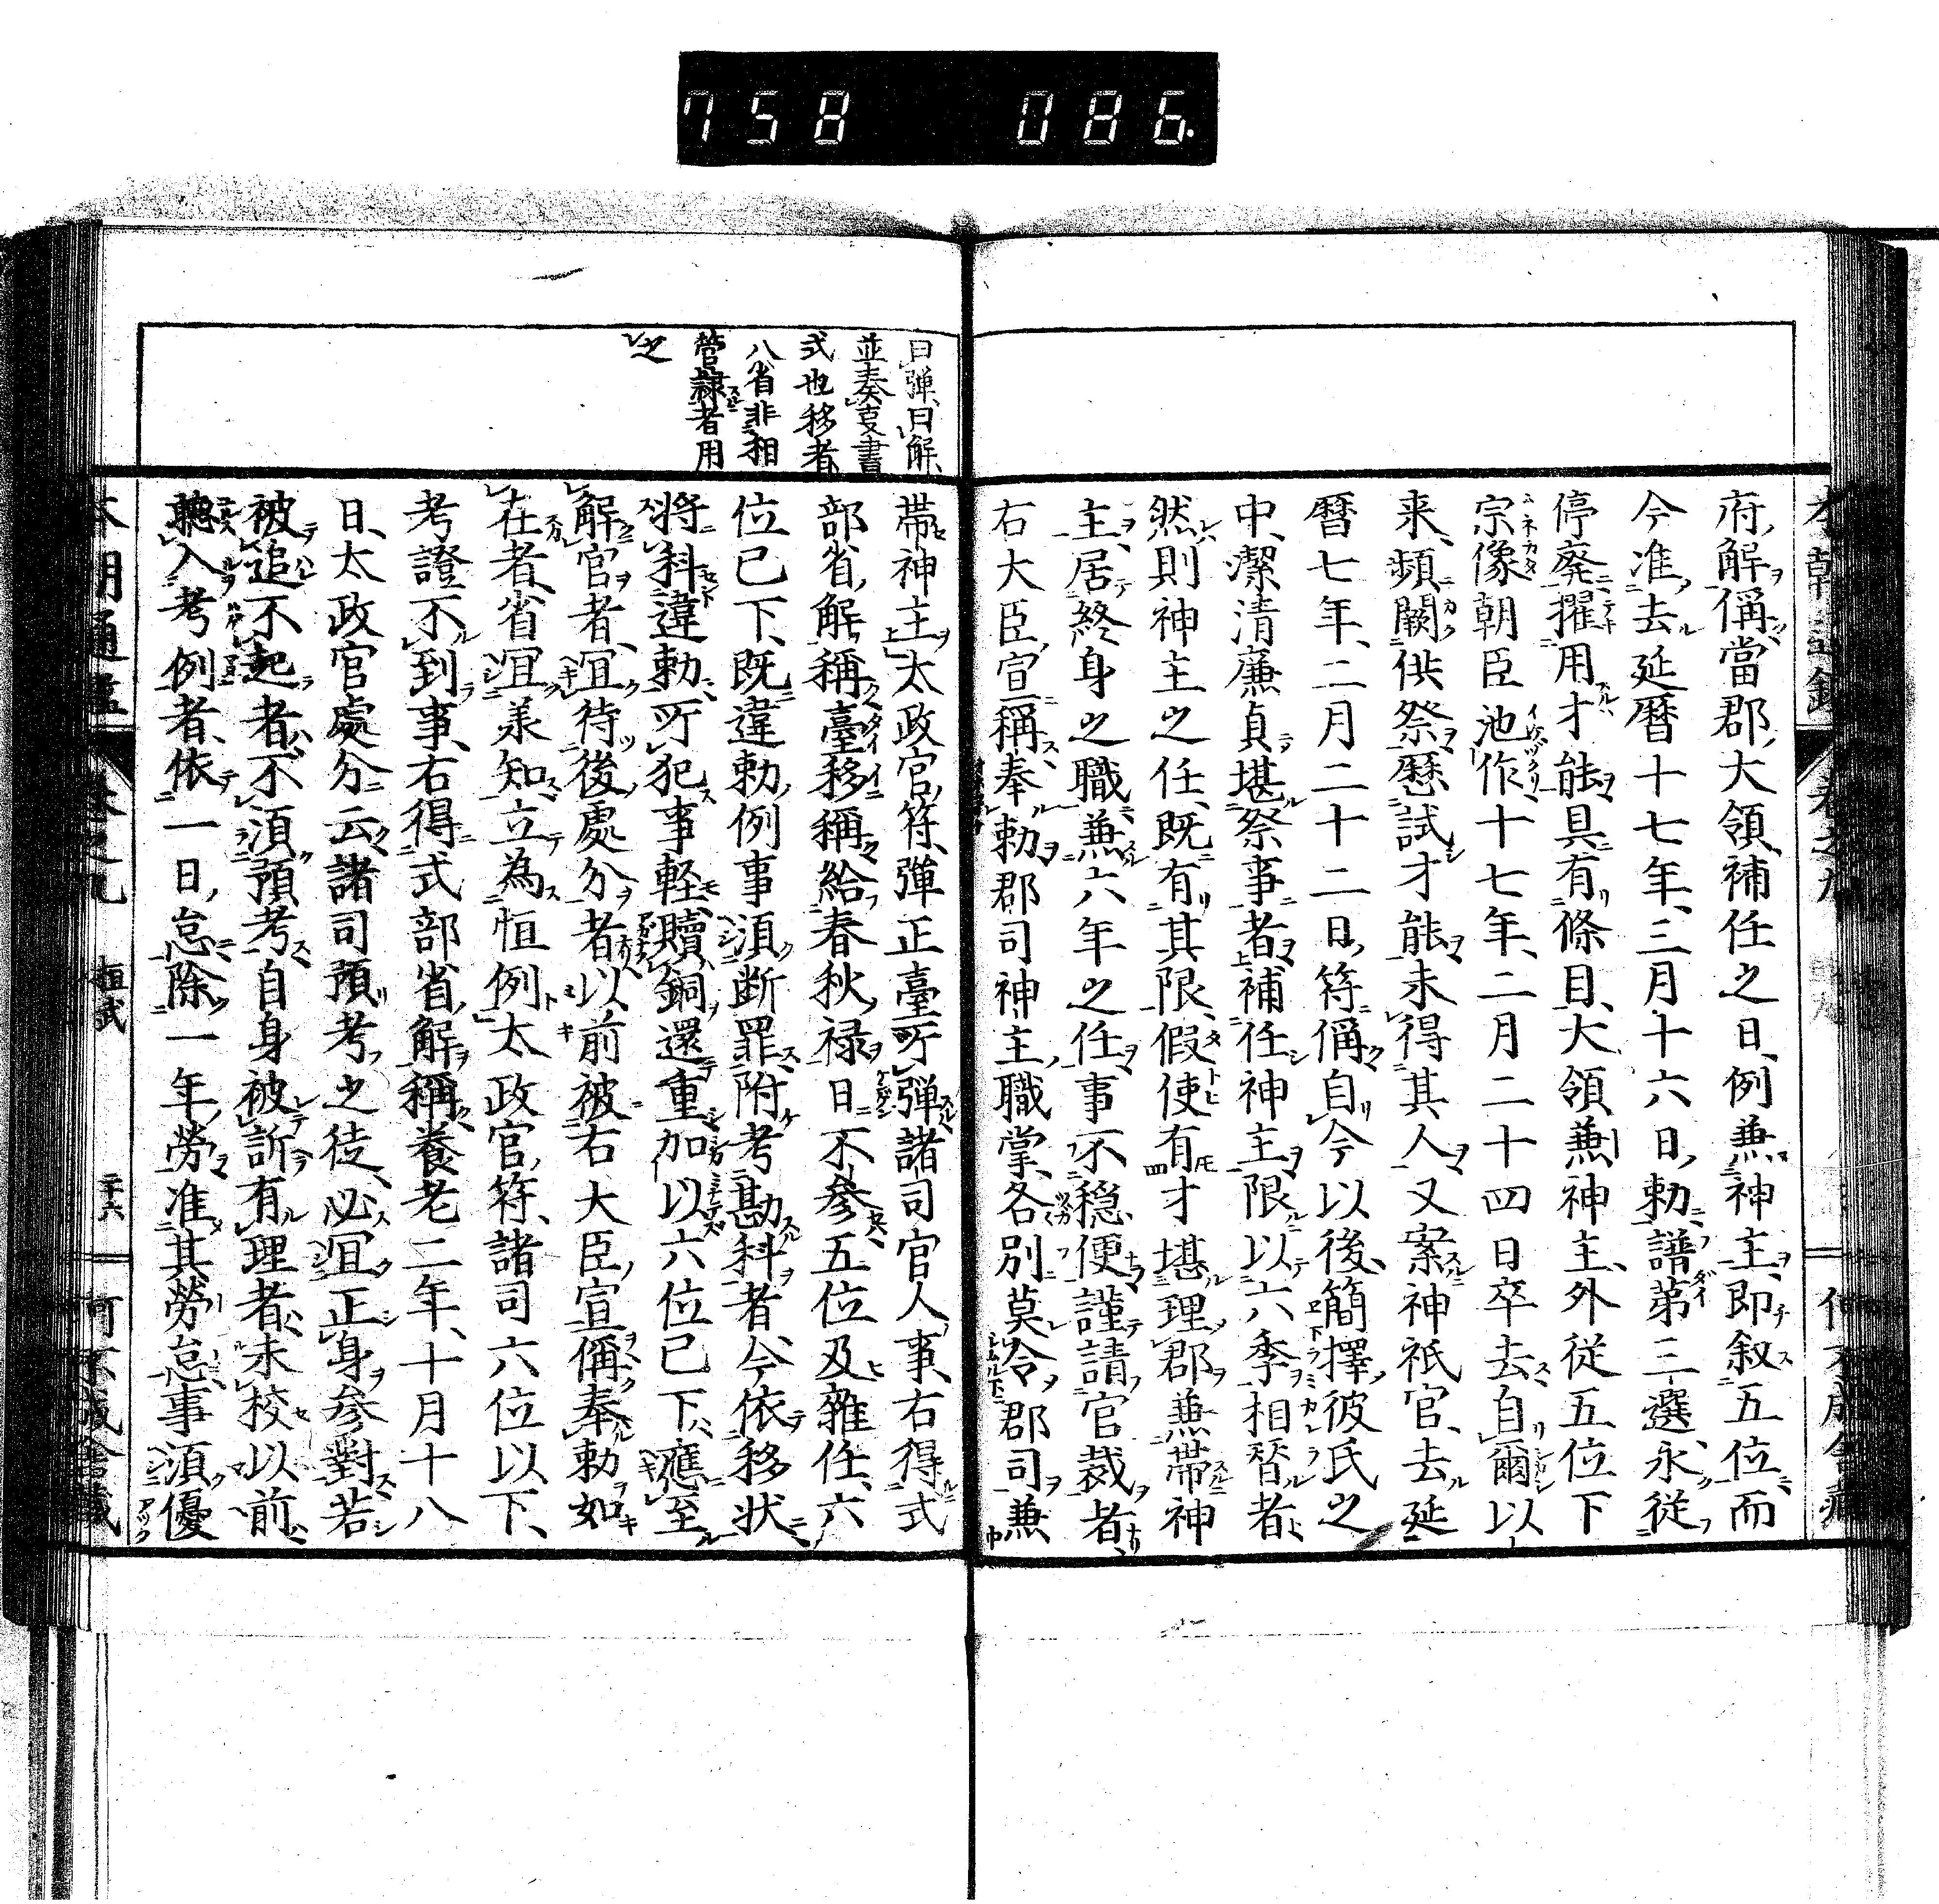 758 086.
府解偁當郡大領補任之日例兼神主即叙五位而
今准去延曆十七年三月十六日勅譜第三選永從
停廢擢用才能具有條目大領兼神主外從五位下
宗像朝臣池作十七年二月二十四日卒去自爾以
来頻闕供祭歷試才能未得其人又案神祇官去延
曆七年二月二十二日符偁自今以後簡擇彼氏之
中潔清廉貞堪祭事者補任神主限以六季相替者
然則神主之任既有其限假使有才堪理郡兼帶神
主居終身之職兼六年之任事不穏便謹請官裁者
右大臣宣稱奉勅郡司神主職掌各別莫令郡司兼
曰弾曰解
並奏支書
式也移者
八省非相
管隷者用
之
帶神主太政官符彈正臺所弾諸司官人事右得式
部省解稱臺移稱給春秋禄日不参五位及雜任六
位已下既違勅例事須断罪附考勘科者今依移状
將科違勅所犯事軽贖銅還重加以六位已下應至
解官者冝待後處分者以前被右大臣宣偁奉勅如
在者省冝羕知立為恒例太政官符諸司六位以下
考證不到事右得式部省解稱養老二年十月十八
日太政官處分云諸司預考之徒必冝正身参對若
被追不起者不須預考自身被訴有理者未挍以前
聽入考例者依一日怠除一年勞准其勞怠事須優
本朝通鑑 卷之九 桓武 三十六